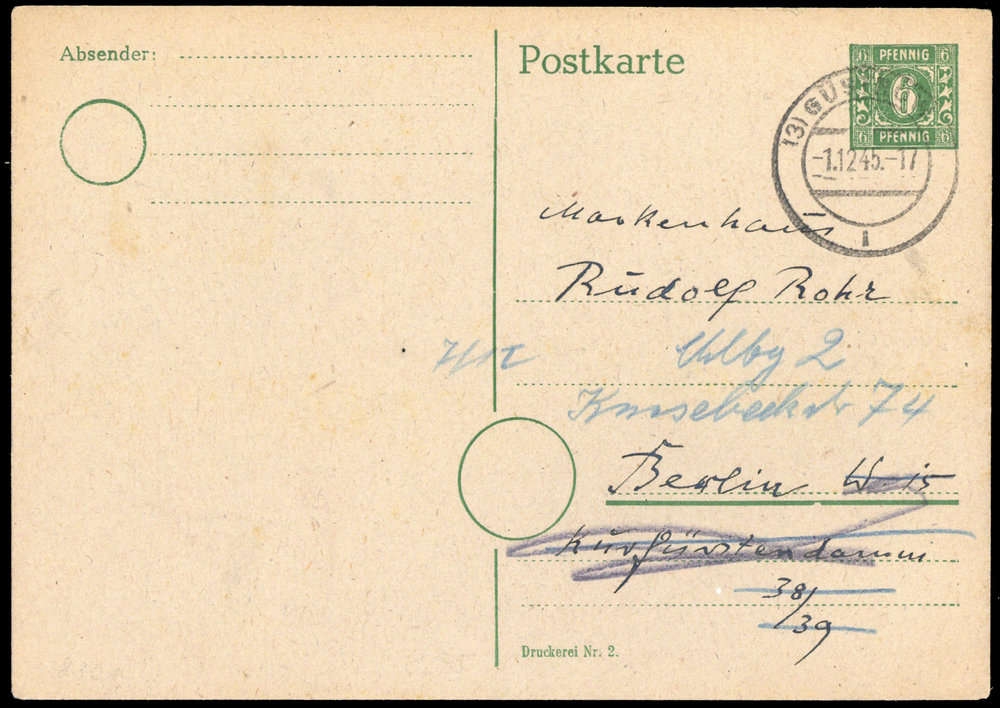 Absender:
Postkarte
6 PFENNIG 6
6
6 PFENNIG 6
(3) GÜST
-1.12.45.-17
Markenhaus
Rudolf Rohr
Chlbg 2
Knesebeckstr 74
Berlin W. 15
Kurfürstendamm
38/
39
Druckerei Nr. 2.